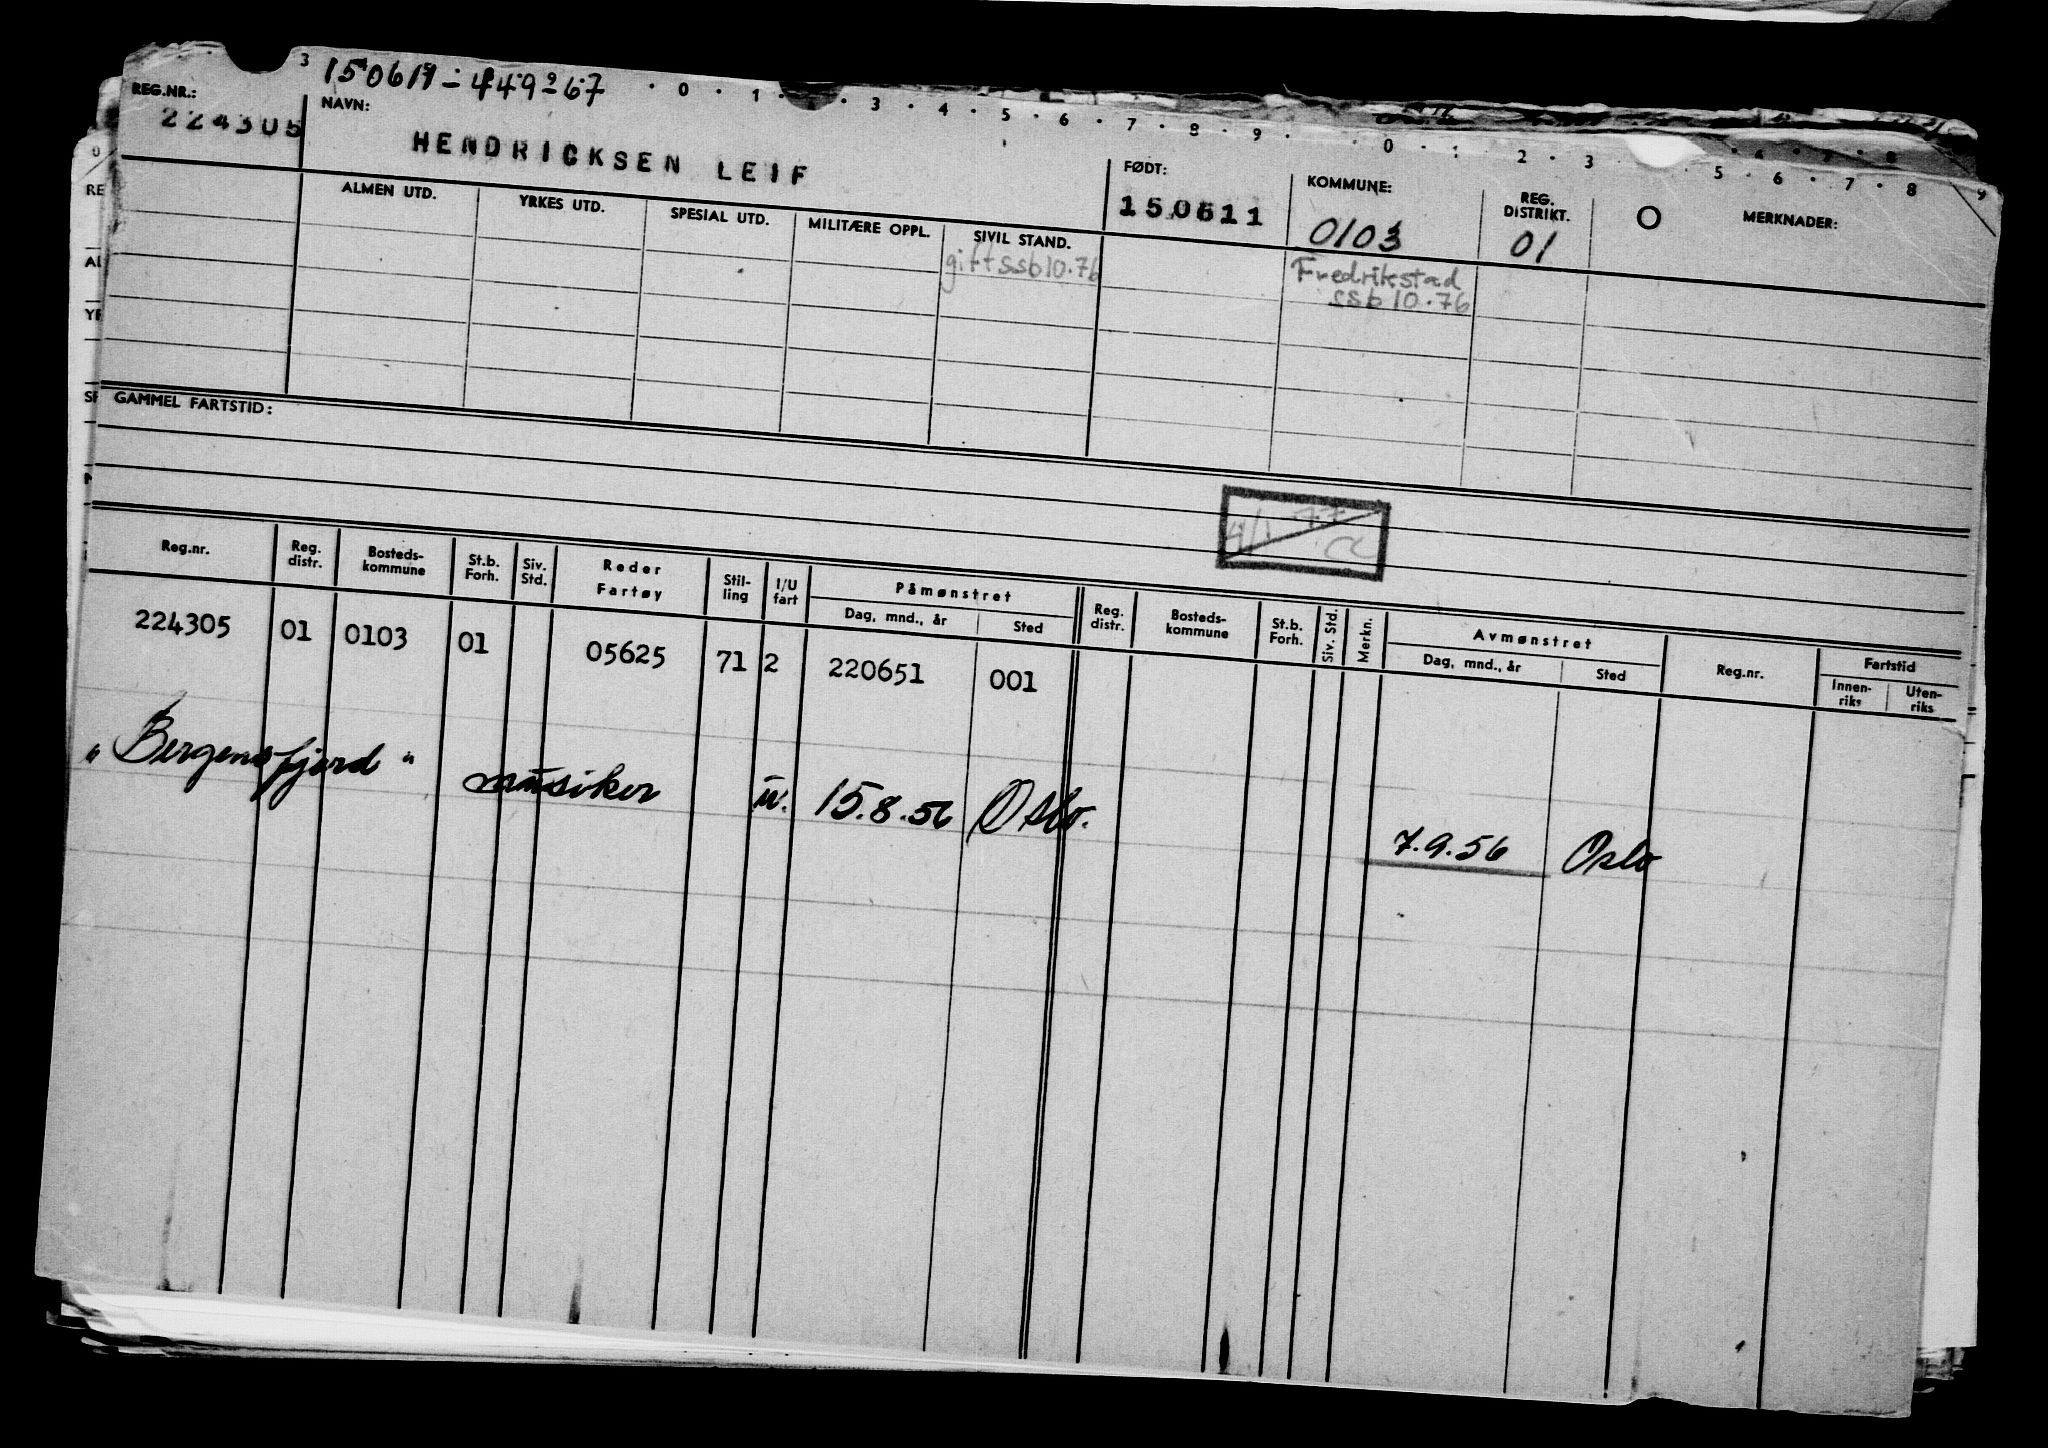 150611-449-67
3 · 0 · 1 · · 3 · 4 · 5 · 6 · 7 · 8 · 9 · · 0 · 1 · 2 · 3 · 5 · 6 · 7 · 8 9
REG.NR.: 224305
NAVN: HENDRICKSEN LEIF
FØDT: 150611
KOMMUNE: 0103
REG. DISTRIKT. 01
O MERKNADER:
ALMEN UTD. YRKES UTD. SPESIAL UTD. MILITÆRE OPPL. SIVIL STAND.
gift ssb 10.76
Fredrikstad
ssb 10.76
GAMMEL FARTSTID:
4/1 77
Reg.nr. Reg. distr. Bosteds-kommune St.b. Forh. Siv. Std. Reder Fartøy Stil-ling I/U fart Påmønstret Dag, mnd., år Sted Reg. distr. Bosteds-kommune St.b. Forh. Siv. Std. Merkn. Avmønstret Dag, mnd., år Sted Reg.nr. Fartstid Innen-riks Uten-riks
224305 01 0103 01 05625 71 2 220651 001
"Bergensfjord" musiker u. 15.8.56 Oslo. 7.9.56 Oslo